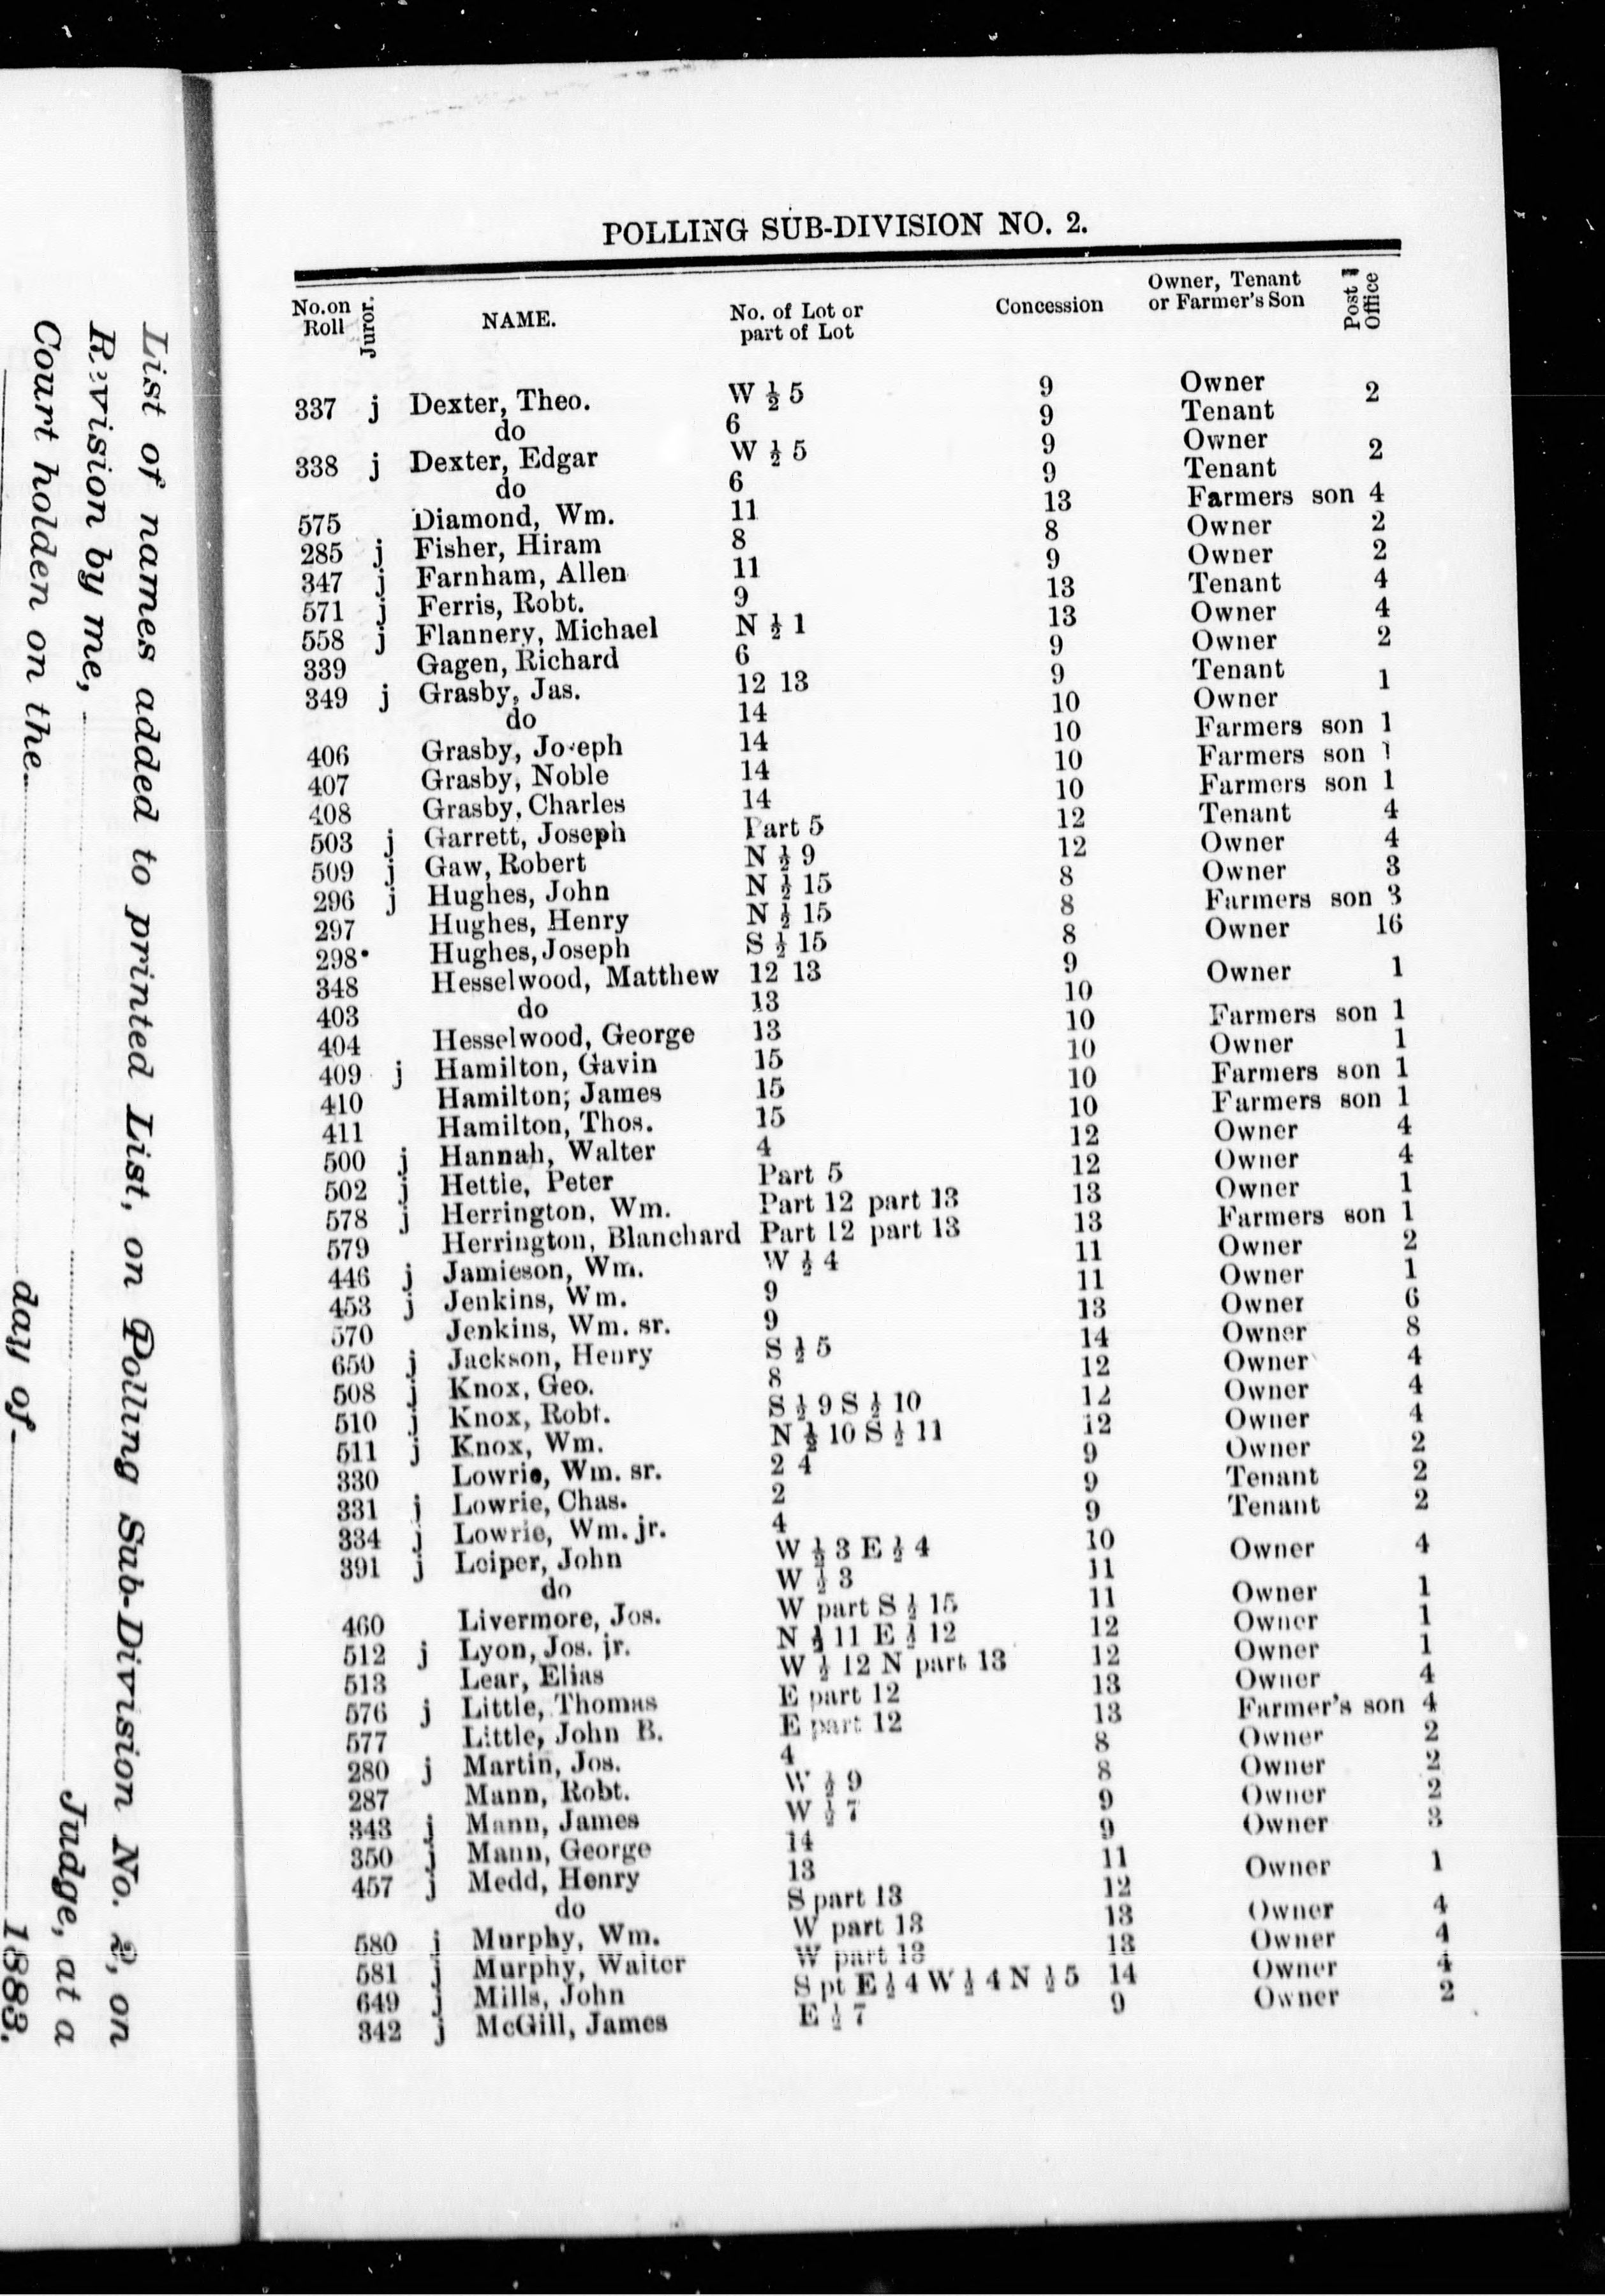 List of names added to printed List, on Polling Sub-Division No. 2, on
Revision by me, Judge, at a
Court holden on the day of 1883.
POLLING SUB-DIVISION NO. 2.
No. on Roll Juror. NAME. No. of Lot or part of Lot Concession Owner, Tenant or Farmer's Son Post Office
337 j Dexter, Theo. W ½ 5 9 Owner 2
do 6 9 Tenant
338 j Dexter, Edgar W ½ 5 9 Owner 2
do 6 9 Tenant
575 Diamond, Wm. 11 13 Farmers son 4
285 j Fisher, Hiram 8 8 Owner 2
347 j Farnham, Allen 11 9 Owner 2
571 j Ferris, Robt. 9 13 Tenant 4
558 j Flannery, Michael N ½ 1 13 Owner 4
339 Gagen, Richard 6 9 Owner 2
349 j Grasby, Jas. 12 13 9 Tenant 1
do 14 10 Owner
406 Grasby, Joseph 14 10 Farmers son 1
407 Grasby, Noble 14 10 Farmers son 1
408 Grasby, Charles 14 10 Farmers son 1
503 j Garrett, Joseph Part 5 12 Tenant 4
509 j Gaw, Robert N ½ 9 12 Owner 4
296 j Hughes, John N ½ 15 8 Owner 3
297 Hughes, Henry N ½ 15 8 Farmers son 3
298 Hughes, Joseph S ½ 15 8 Owner 16
348 Hesselwood, Matthew 12 13 9 Owner 1
403 do 13 10
404 Hesselwood, George 13 10 Farmers son 1
409 j Hamilton, Gavin 15 10 Owner 1
410 Hamilton, James 15 10 Farmers son 1
411 Hamilton, Thos. 15 10 Farmers son 1
500 j Hannah, Walter 4 12 Owner 4
502 j Hettie, Peter Part 5 12 Owner 4
578 j Herrington, Wm. Part 12 part 13 13 Owner 1
579 Herrington, Blanchard Part 12 part 13 13 Farmers son 1
446 j Jamieson, Wm. W ½ 4 11 Owner 2
453 j Jenkins, Wm. 9 11 Owner 1
570 Jenkins, Wm. sr. 9 13 Owner 6
650 j Jackson, Henry S ½ 5 14 Owner 8
508 j Knox, Geo. 8 12 Owner 4
510 j Knox, Robt. S ½ 9 S ½ 10 12 Owner 4
511 j Knox, Wm. N ½ 10 S ½ 11 12 Owner 4
330 Lowrie, Wm. sr. 2 4 9 Owner 2
331 j Lowrie, Chas. 2 9 Tenant 2
334 j Lowrie, Wm. jr. 4 9 Tenant 2
391 j Leiper, John W ½ 3 E ½ 4 10 Owner 4
do W ½ 3 11
460 Livermore, Jos. W part S ½ 15 11 Owner 1
512 j Lyon, Jos. jr. N ½ 11 E ½ 12 12 Owner 1
513 Lear, Elias W ½ 12 N part 13 12 Owner 1
576 j Little, Thomas E part 12 13 Owner 4
577 Little, John B. E part 12 13 Farmer's son 4
280 j Martin, Jos. 4 8 Owner 2
287 Mann, Robt. W ½ 9 8 Owner 2
343 j Mann, James W ½ 7 9 Owner 2
350 j Mann, George 14 9 Owner 3
457 j Medd, Henry 13 11 Owner 1
do S part 13 12
580 j Murphy, Wm. W part 13 13 Owner 4
581 j Murphy, Walter W part 13 13 Owner 4
649 j Mills, John S pt E ½ 4 W ½ 4 N ½ 5 14 Owner 4
342 j McGill, James E ½ 7 9 Owner 2